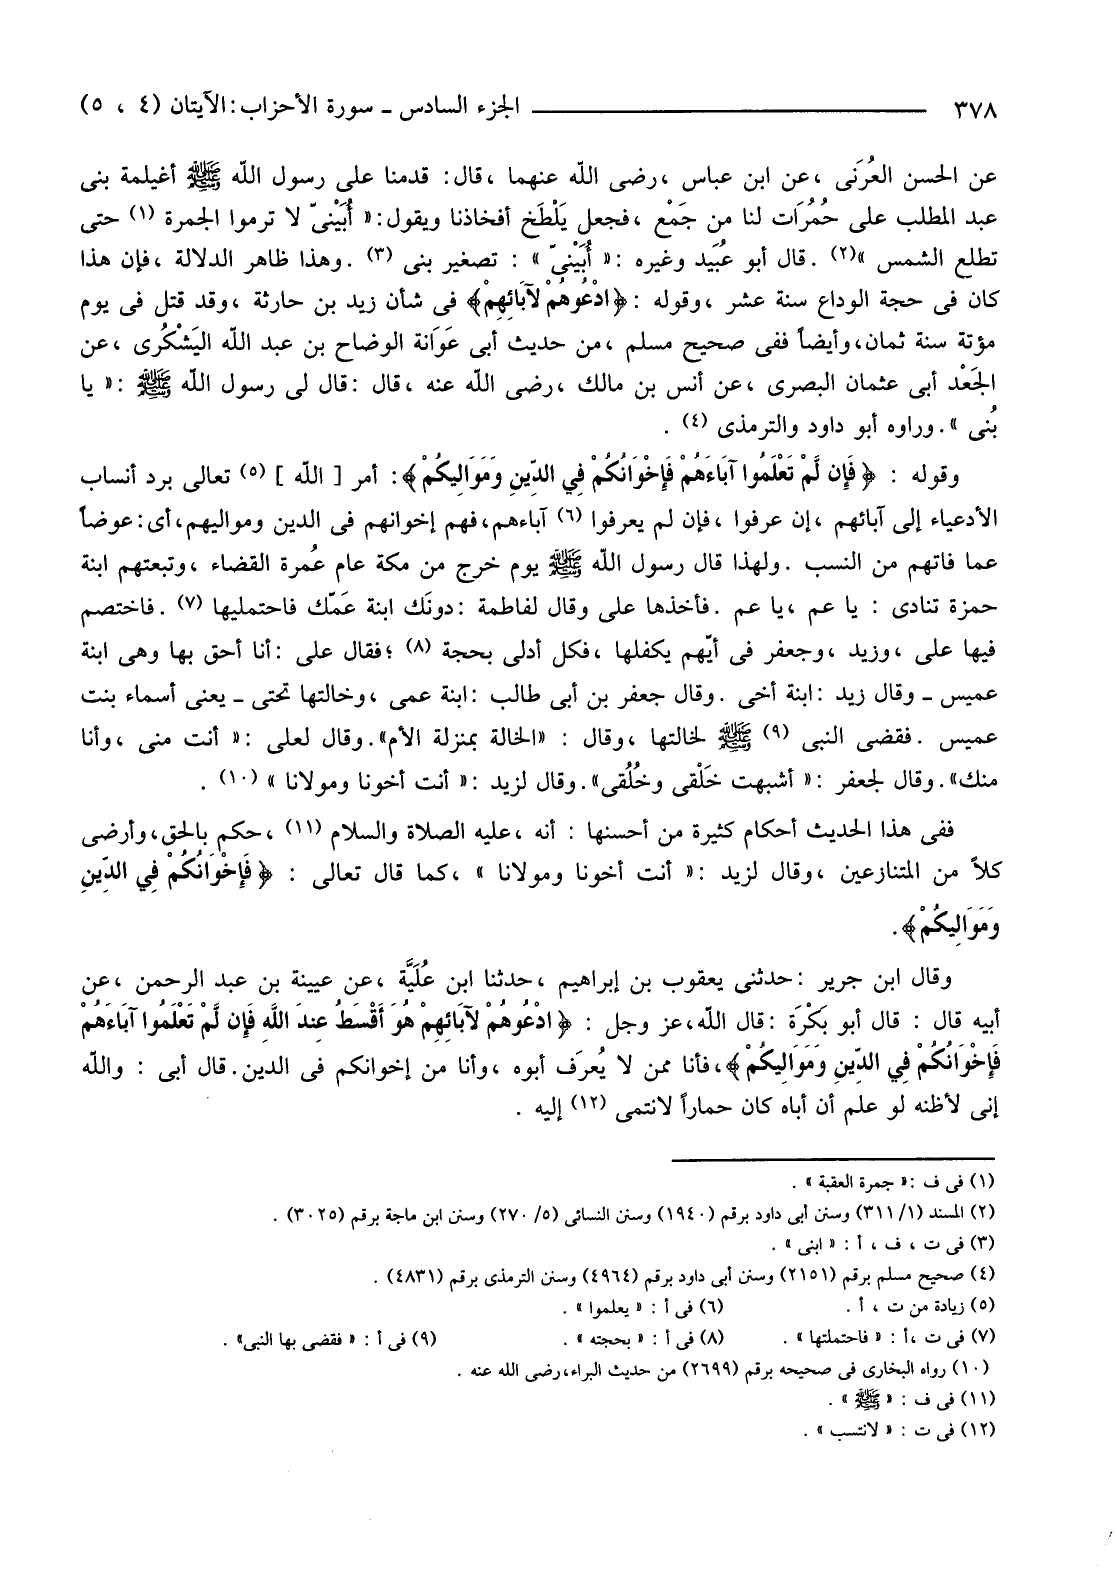 ٣٧٨ ــــــــــــــــــــــــــــ الجزء السادس ـ سورة الأحزاب: الآيتان (٤ ، ٥)
عن الحسن العُرَنى ، عن ابن عباس ، رضى الله عنهما ، قال: قدمنا على رسول الله ﷺ أغيلمة بنى
عبد المطلب على حُمُرَات لنا من جَمْع ، فجعل يَلْطَخ أفخاذنا ويقول: « أُبَيْنىّ لا ترموا الجمرة (١) حتى
تطلع الشمس »(٢) . قال أبو عُبَيد وغيره : « أُبَيْنىّ » : تصغير بنى (٣) . وهذا ظاهر الدلالة ، فإن هذا
كان فى حجة الوداع سنة عشر ، وقوله : ﴿ ادْعُوهُمْ لآبَائِهِمْ﴾ فى شأن زيد بن حارثة ، وقد قتل فى يوم
مؤتة سنة ثمان، وأيضاً ففى صحيح مسلم ، من حديث أبى عَوَانة الوضاح بن عبد الله اليَشْكُرى ، عن
الجَعْد أبى عثمان البصرى ، عن أنس بن مالك ، رضى الله عنه ، قال : قال لى رسول الله ﷺ : « يا
بُنى ». ورواه أبو داود والترمذى (٤) .
وقوله : ﴿ فَإِن لَّمْ تَعْلَمُوا آبَاءَهُمْ فَإِخْوَانُكُمْ فِي الدِّينِ وَمَوَالِيكُمْ ﴾: أمر [ الله ] (٥) تعالى برد أنساب
الأدعياء إلى آبائهم ، إن عرفوا ، فإن لم يعرفوا (٦) آباءهم، فهم إخوانهم فى الدين ومواليهم، أى: عوضاً
عما فاتهم من النسب . ولهذا قال رسول الله ﷺ يوم خرج من مكة عام عُمرة القضاء ، وتبعتهم ابنة
حمزة تنادى : يا عم ، يا عم . فأخذها على وقال لفاطمة : دونَك ابنة عَمّك فاحتمليها (٧) . فاختصم
فيها على ، وزيد ، وجعفر فى أيّهم يكفلها ، فكل أدلى بحجة (٨) ؛ فقال على : أنا أحق بها وهى ابنة
عميس ـ وقال زيد : ابنة أخى . وقال جعفر بن أبى طالب : ابنة عمى ، وخالتها تحتى ـ يعنى أسماء بنت
عميس . فقضى النبى (٩) ﷺ لخالتها ، وقال : «الخالة بمنزلة الأم». وقال لعلى : « أنت منى ، وأنا
منك». وقال لجعفر : « أشبهت خَلْقى وخُلُقى». وقال لزيد : « أنت أخونا ومولانا » (١٠) .
ففى هذا الحديث أحكام كثيرة من أحسنها : أنه ، عليه الصلاة والسلام (١١) ، حكم بالحق، وأرضى
كلاً من المتنازعين ، وقال لزيد : « أنت أخونا ومولانا » ، كما قال تعالى : ﴿ فَإِخْوَانُكُمْ فِي الدِّينِ
وَمَوَالِيكُمْ ﴾.
وقال ابن جرير : حدثنى يعقوب بن إبراهيم ، حدثنا ابن عُلَيَّة ، عن عيينة بن عبد الرحمن ، عن
أبيه قال : قال أبو بكْرَة : قال الله، عز وجل : ﴿ ادْعُوهُمْ لآبَائِهِمْ هُوَ أَقْسَطُ عِندَ اللَّهِ فَإِن لَّمْ تَعْلَمُوا آبَاءَهُمْ
فَإِخْوَانُكُمْ فِي الدِّينِ وَمَوَالِيكُمْ ﴾، فأنا ممن لا يُعرَف أبوه ، وأنا من إخوانكم فى الدين. قال أبى : والله
إنى لأظنه لو علم أن أباه كان حماراً لانتمى (١٢) إليه .
(١) فى ف : « جمرة العقبة » .
(٢) المسند (١/ ٣١١) وسنن أبى داود برقم (١٩٤٠) وسنن النسائى (٥/ ٢٧٠) وسنن ابن ماجة برقم (٣٠٢٥) .
(٣) فى ت ، ف ، أ : « ابنى » .
(٤) صحيح مسلم برقم (٢١٥١) وسنن أبى داود برقم (٤٩٦٤) وسنن الترمذى برقم (٤٨٣١) .
(٥) زيادة من ت ، أ . (٦) فى أ : « يعلموا » .
(٧) فى ت ، أ : « فاحتملتها » . (٨) فى أ : « بحجته » . (٩) فى أ : « فقضى بها النبى» .
(١٠) رواه البخارى فى صحيحه برقم (٢٦٩٩) من حديث البراء، رضى الله عنه .
(١١) فى ف : « ﷺ » .
(١٢) فى ت : « لانتسب » .